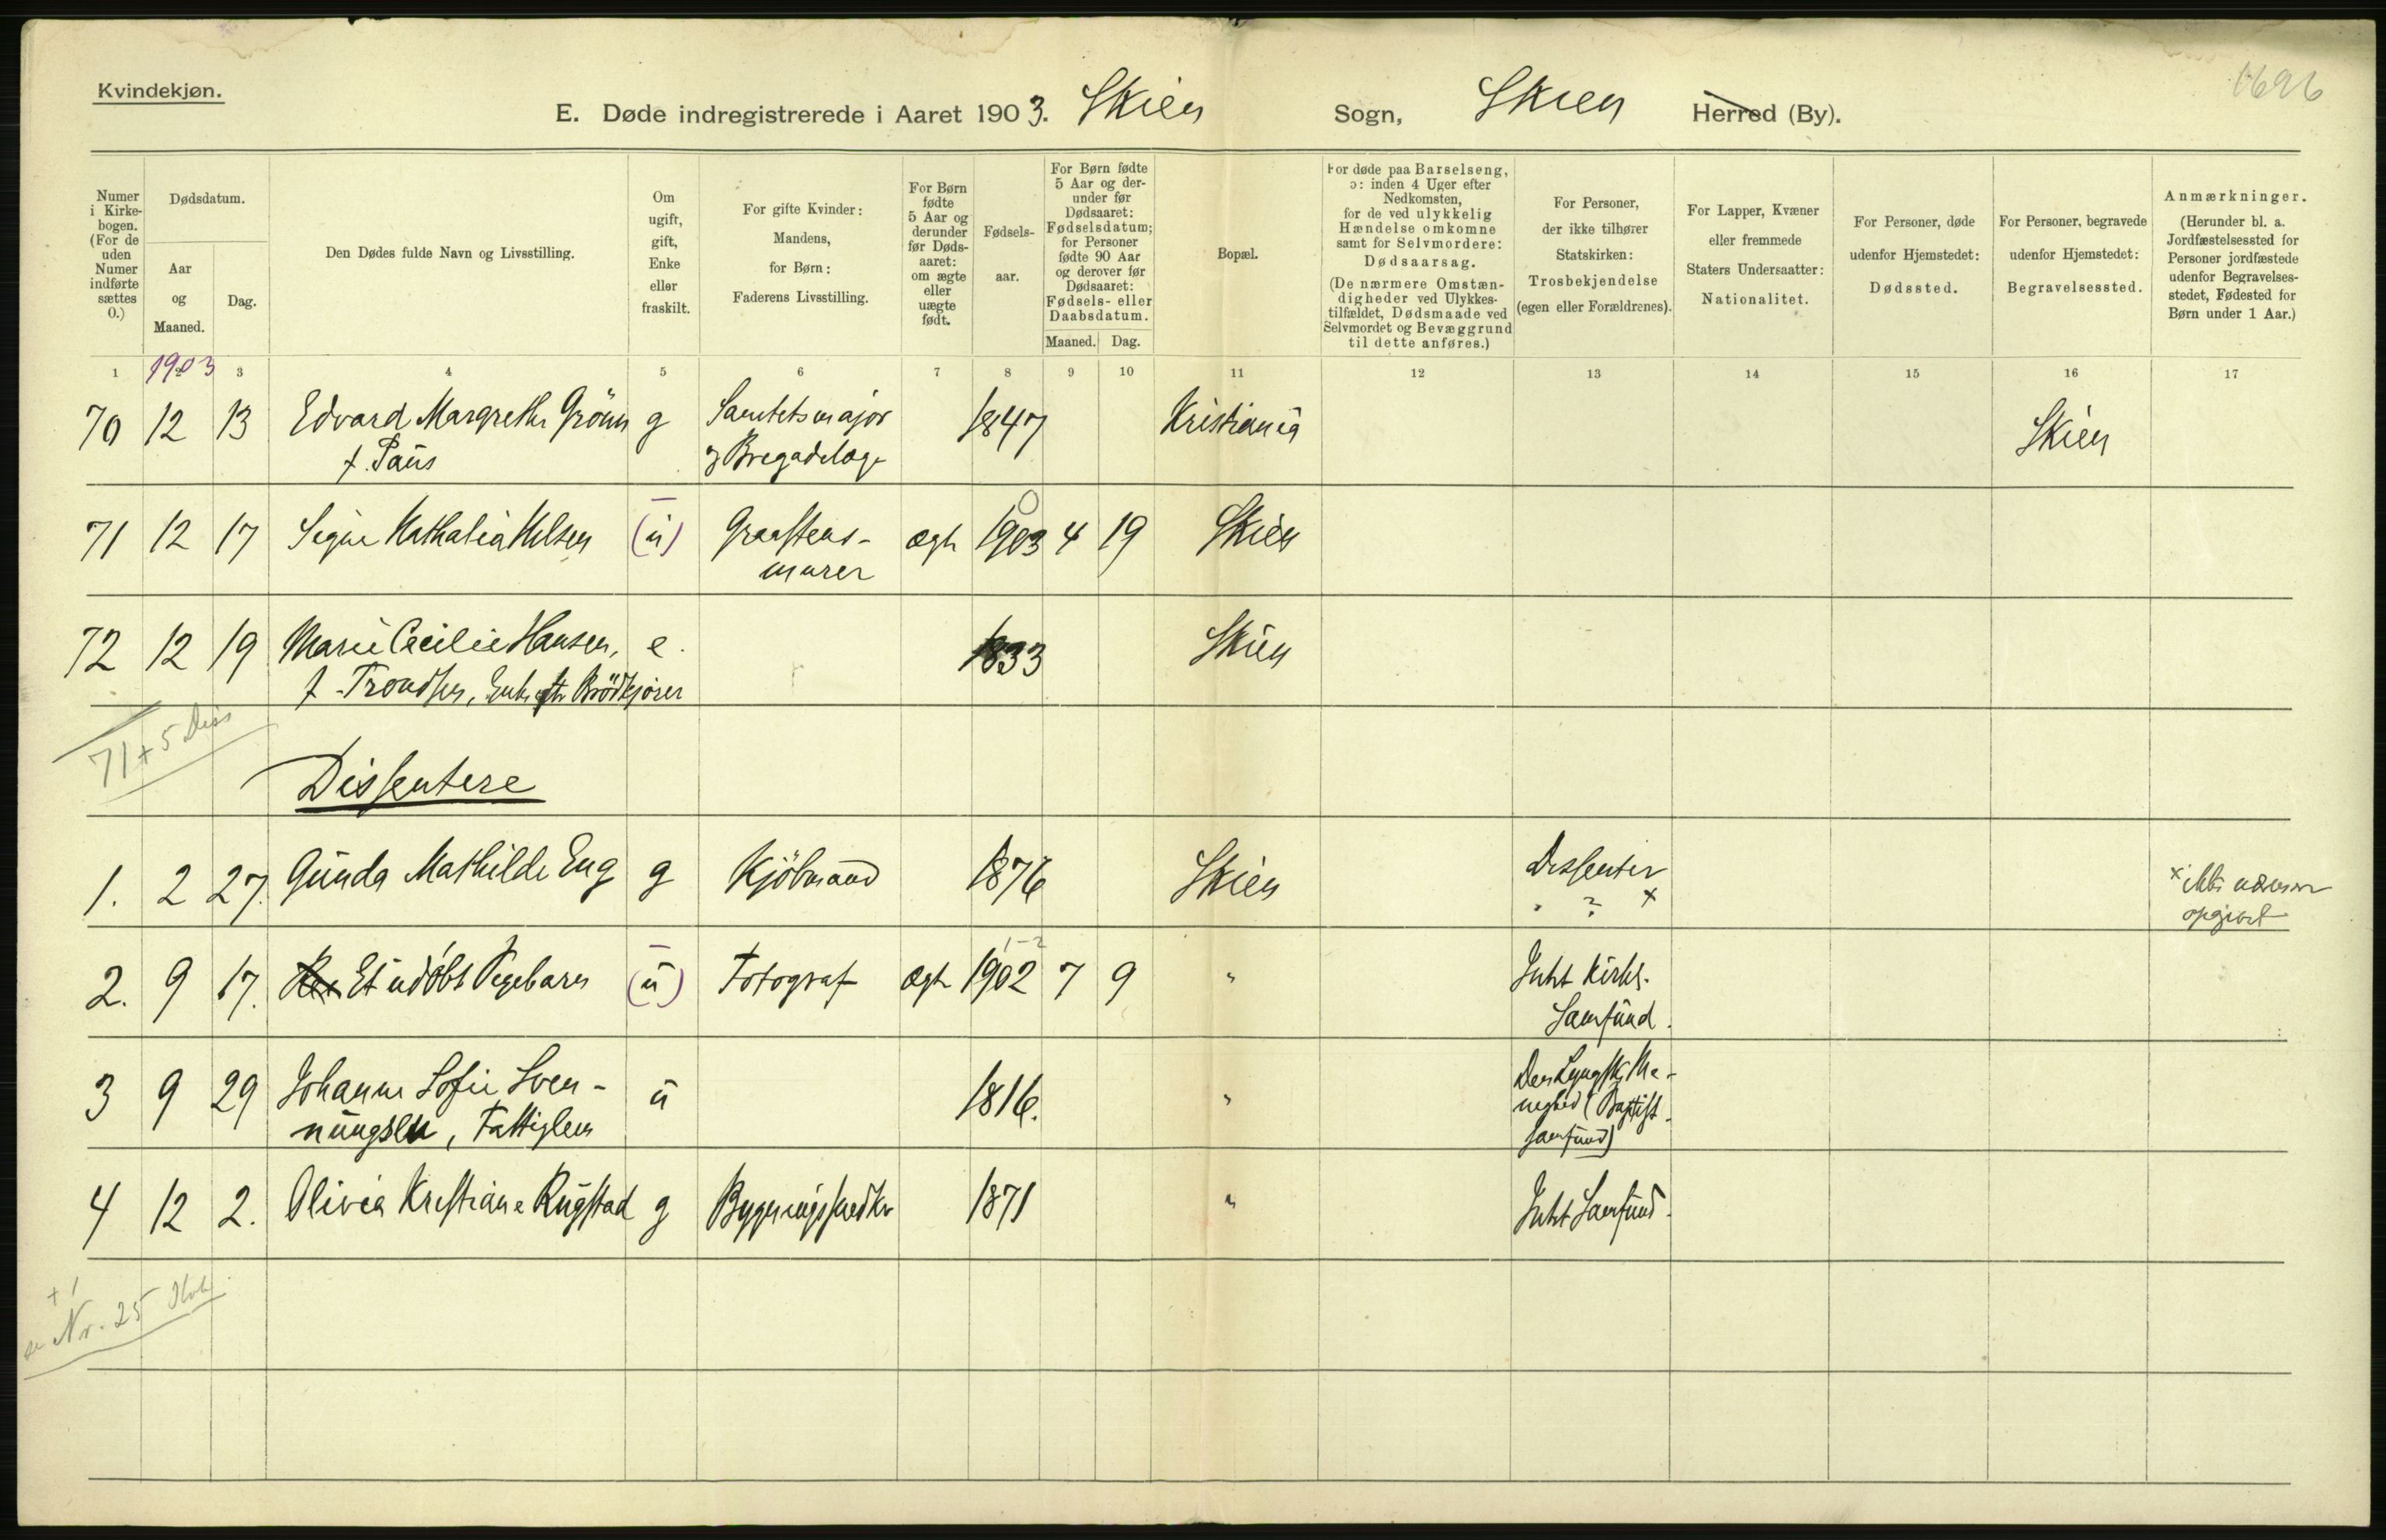 Kvindekjøn.
1696
E. Døde indregistrerede i Aaret 1903. Skien Sogn, Skien Herred (By).
Numer i Kirkebogen. (For de uden Numer indførte sættes 0.)
Dødsdatum.
Aar og Maaned.
Dag.
Den Dødes fulde Navn og Livsstilling.
Om ugift, gift, Enke eller fraskilt.
For gifte Kvinder: Mandens, for Børn: Faderens Livsstilling.
For Børn fødte 5 Aar og derunder før Dødsaaret: om ægte eller uægte født.
Fødsels-aar.
For Børn fødte 5 Aar og derunder før Dødsaaret: Fødselsdatum; for Personer fødte 90 Aar og derover før Dødsaaret: Fødsels- eller Daabsdatum.
Maaned. Dag.
Bopæl.
For døde paa Barselseng, ɔ: inden 4 Uger efter Nedkomsten, for de ved ulykkelig Hændelse omkomne samt for Selvmordere: Dødsaarsag.
(De nærmere Omstændigheder ved Ulykkestilfældet, Dødsmaade ved Selvmordet og Bevæggrund til dette anføres.)
For Personer, der ikke tilhører Statskirken: Trosbekjendelse (egen eller Forældrenes).
For Lapper, Kvæner eller fremmede Staters Undersaatter: Nationalitet.
For Personer, døde udenfor Hjemstedet: Dødssted.
For Personer, begravede udenfor Hjemstedet: Begravelsessted.
Anmærkninger.
(Herunder bl. a. Jordfæstelsessted for Personer jordfæstede udenfor Begravelsesstedet, Fødested for Børn under 1 Aar.)
1 1903 3 4 5 6 7 8 9 10 11 12 13 14 15 16 17
70 12 13 Edvard Margrethe Grönn g Sanitetsmajor 1847 Kristiania Skien
f. Paus og Bregadelæge
71 12 17 Signe Nathalia Nilsen (u) Graastens- ægte 1903 4 19 Skien
murer
72 12 19 Marie Cecilie Hansen, e. 1833 Skien
f. Trondsen, Enke efter Brödkjører
71 + 5 Diss
Dissentere
1. 2 27. Gunda Mathilde Eng g Kjöbmand 1876 Skien Dissenter x ikke nærmere
" ? x opgivet
2. 9 17. Et udöbt Pigebarn (u) Fotograf ægte 1902 7 9 " Intet Kirke-
Samfund.
3 9 29 Johanne Sofie Sven- u 1816. " Den Lyngske Me-
nungsen, Fattiglem nighed (Baptist-
samfund)
4 12 2. Olivia Kristiane Rugstad g Bygningssnedker 1871 " Intet Samfund.
+ 1
se Nr. 25